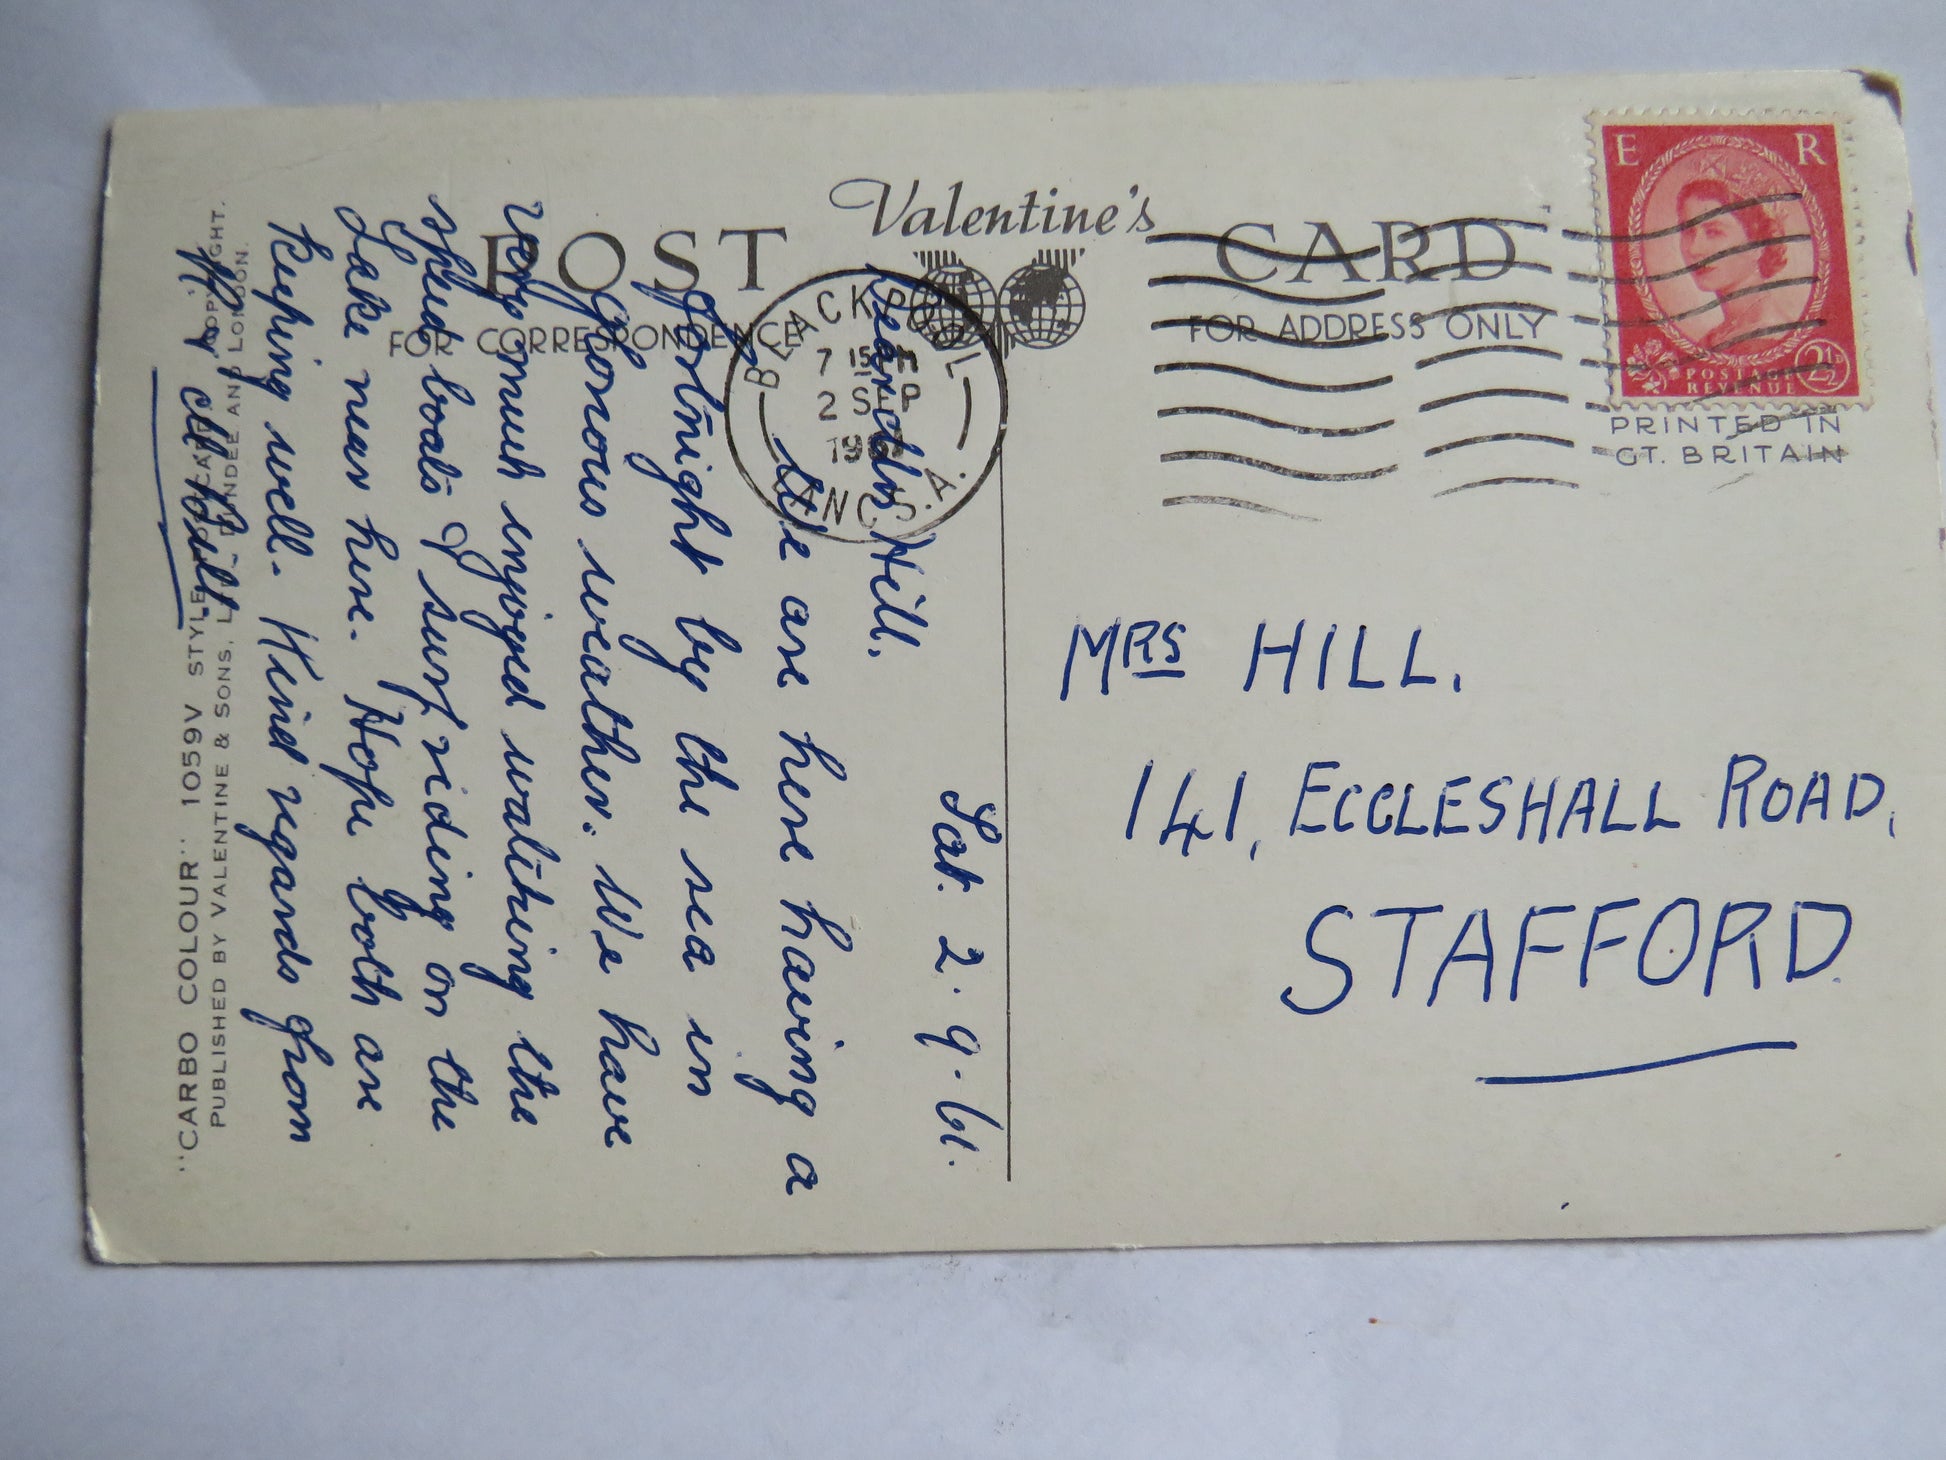 Valentine's
POST CARD
FOR CORRESPONDENCE
FOR ADDRESS ONLY
E R
POSTAGE
REVENUE
2½D
PRINTED IN
GT. BRITAIN
BLACKPOOL
7 15 PM
2 SEP
LANCS. A.
Sat. 2.9.61.
Dear Mrs Hill.
We are here having a
fortnight by the sea in
glorious weather. We have
very much enjoyed watching the
speed boats & surf riding on the
Lake near here. Hope you both are
keeping well. Kind regards from
MRS HILL.
141, ECCLESHALL ROAD,
STAFFORD.
"CARBO COLOUR" 1059V STYLE
PUBLISHED BY VALENTINE & SONS, LTD., DUNDEE AND LONDON.
COPYRIGHT.